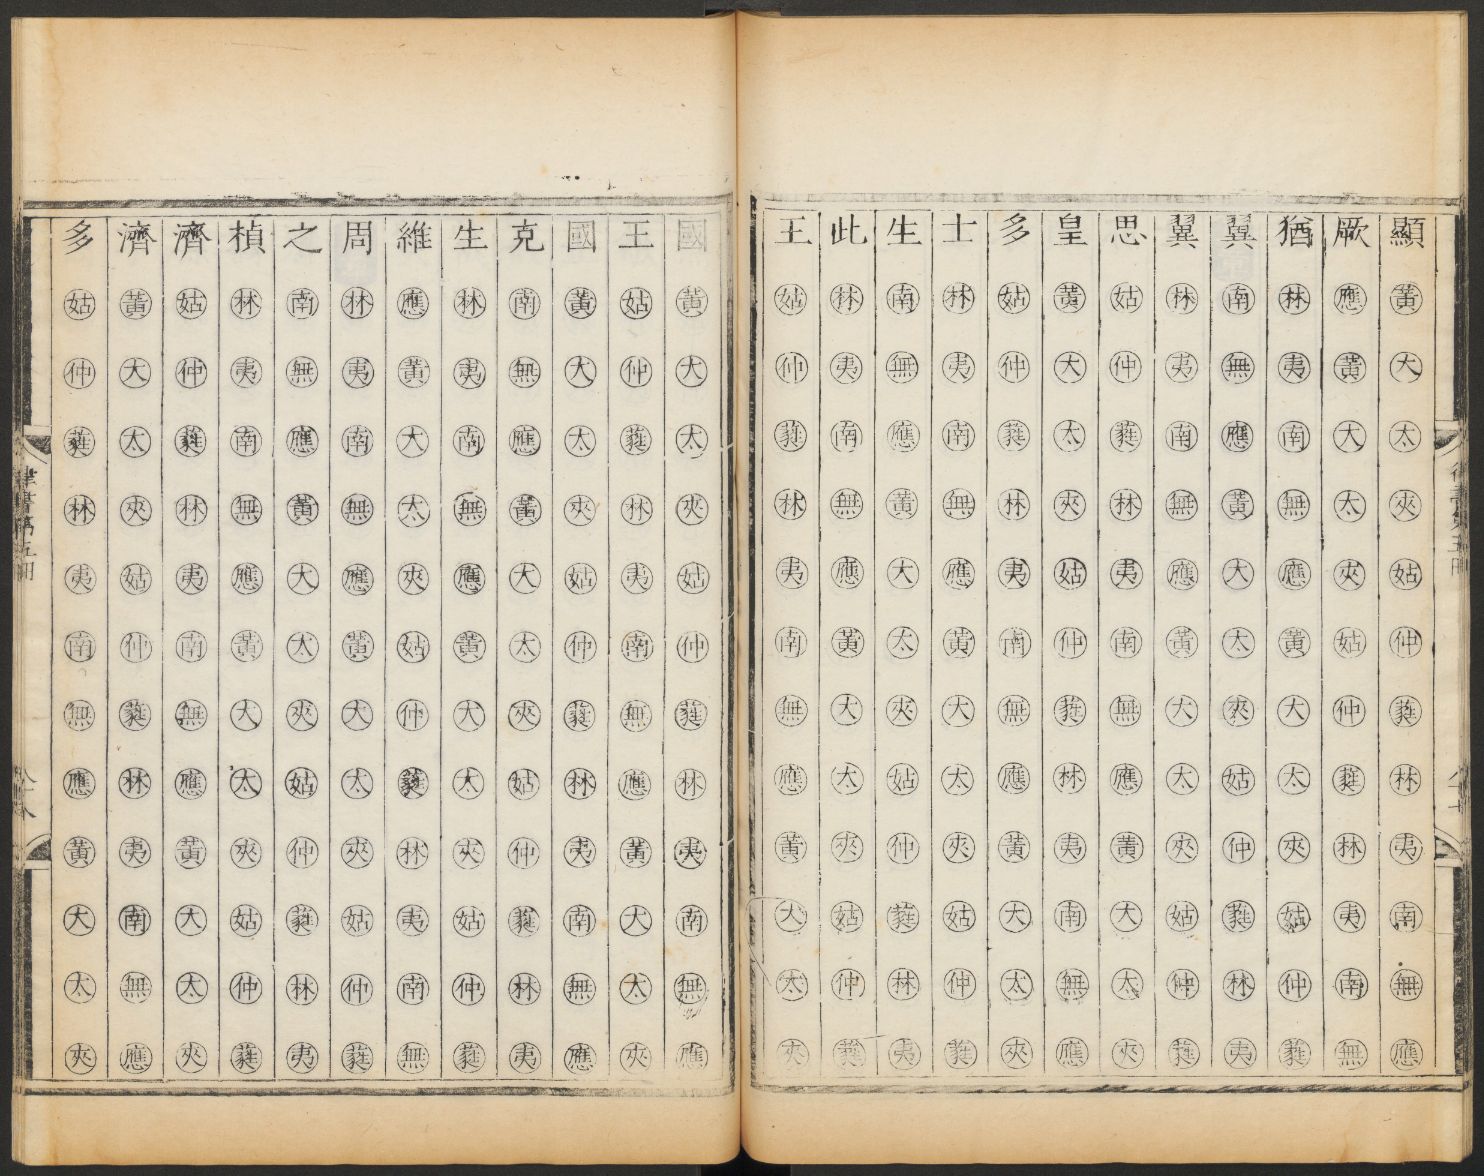 顯黃大太夾姑仲蕤林夷南無應
厥應黃大太夾姑仲蕤林夷南無
猶林夷南無應黃大太夾姑仲蕤
翼南無應黃大太夾姑仲蕤林夷
翼林夷南無應黃大太夾姑仲蕤
思姑仲蕤林夷南無應黃大太夾
皇黃大太夾姑仲蕤林夷南無應
多姑仲蕤林夷南無應黃大太夾
士林夷南無應黃大太夾姑仲蕤
生南無應黃大太夾姑仲蕤林夷
此林夷南無應黃大太夾姑仲蕤
王姑仲蕤林夷南無應黃大太夾
國黃大太夾姑仲蕤林夷南無應
王姑仲蕤林夷南無應黃大太夾
國黃大太夾姑仲蕤林夷南無應
克南無應黃大太夾姑仲蕤林夷
生林夷南無應黃大太夾姑仲蕤
維應黃大太夾姑仲蕤林夷南無
周林夷南無應黃大太夾姑仲蕤
之南無應黃大太夾姑仲蕤林夷
楨林夷南無應黃大太夾姑仲蕤
濟姑仲蕤林夷南無應黃大太夾
濟黃大太夾姑仲蕤林夷南無應
多姑仲蕤林夷南無應黃大太夾
律書第五冊